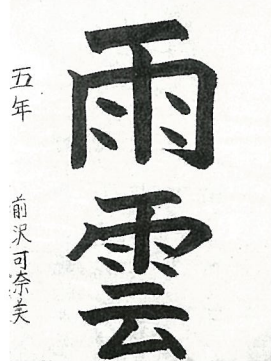 雨雲
五年
前沢可奈美